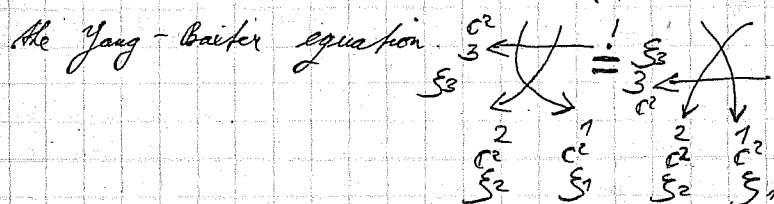 the Yang-Baxter equation. C² 3 ! = ξ₃ 3 C²
ξ₃
2 1 2 1
C² C² C² C²
ξ₂ ξ₁ ξ₂ ξ₁